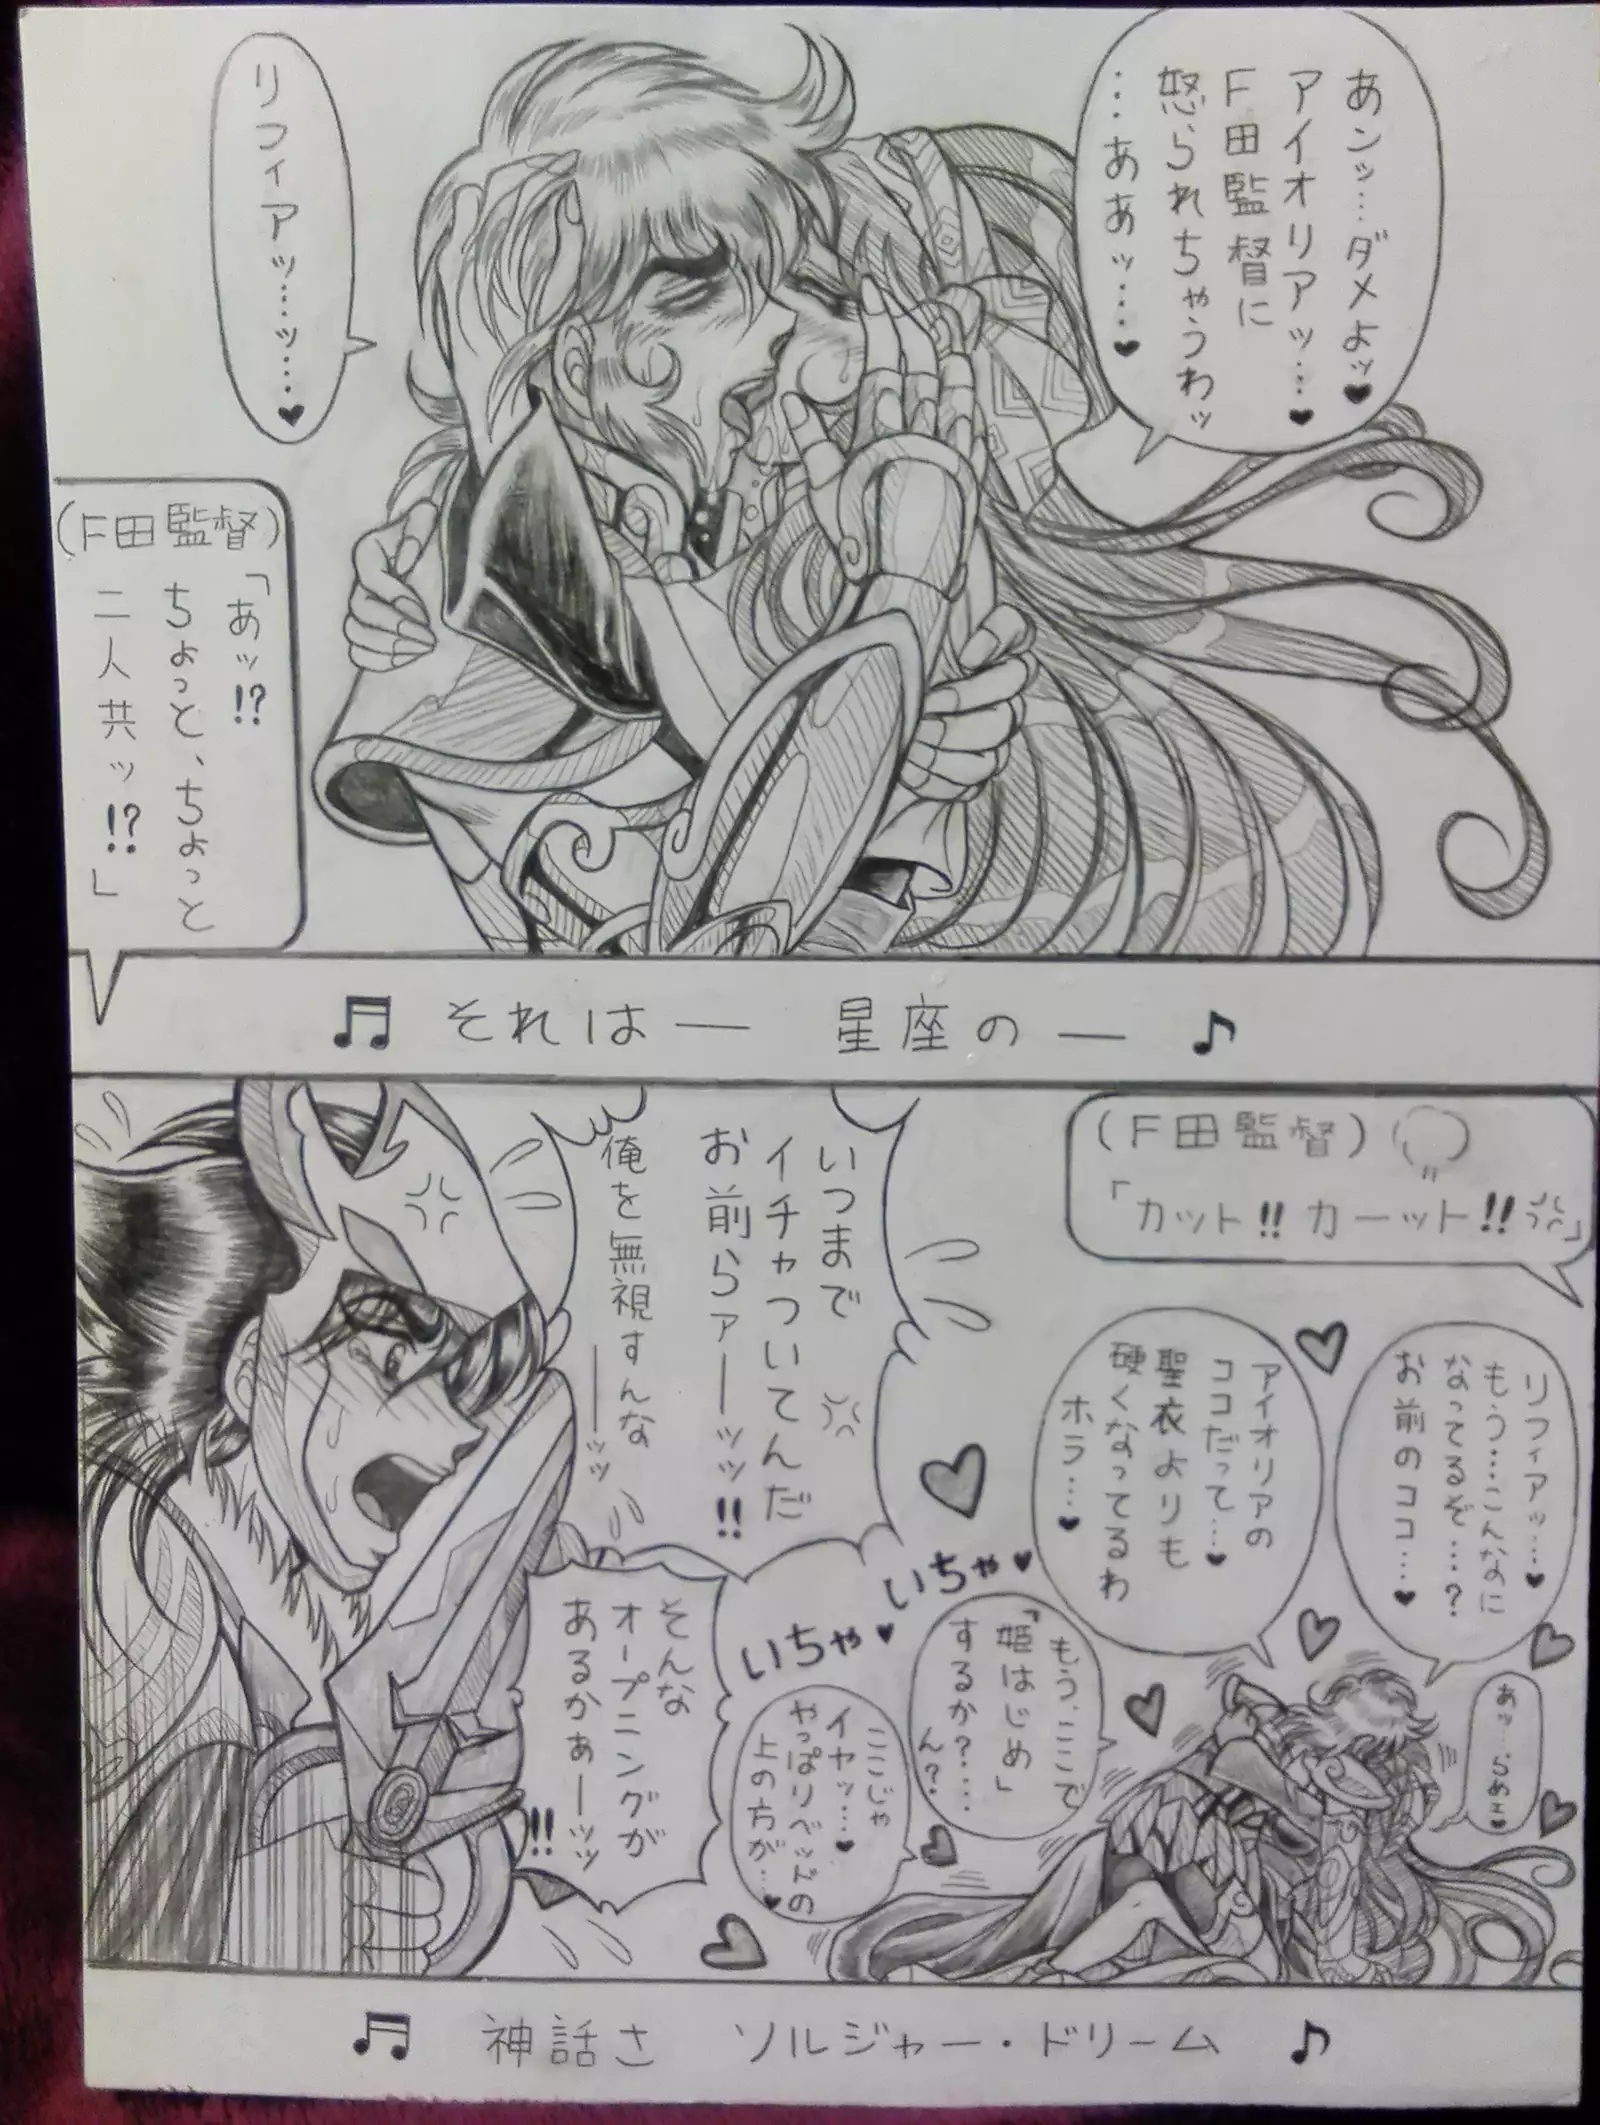 あンッ…ダメよッ♥
アイオリアッ…♥
F田監督に
怒られちゃうわッ
…ああッ…♥
リフィアッ…ッ…♥
(F田監督)
「あッ!?
ちょっと、ちょっと
二人共ッ!?」
♬ それは― 星座の― ♪
(F田監督)
「カット!! カーット!!」
リフィアッ…♥
もう…こんなに
なってるぞ…?
お前のココ…♥
アイオリアの
ココだって…♥
聖衣よりも
硬くなってるわ
ホラ…♥
いつまで
イチャついてんだ
お前らァーッッ!!
俺を無視すんな
――ッ
いちゃ♥
いちゃ♥
あッ…らめェ♥
もう、ここで
「姫はじめ」
するか?…
ん?
ここじゃ
イヤッ…♥
やっぱりベッドの
上の方が…♥
そんな
オープニングが
あるかぁーッッ
!!
♬ 神話さ ソルジャー・ドリーム ♪